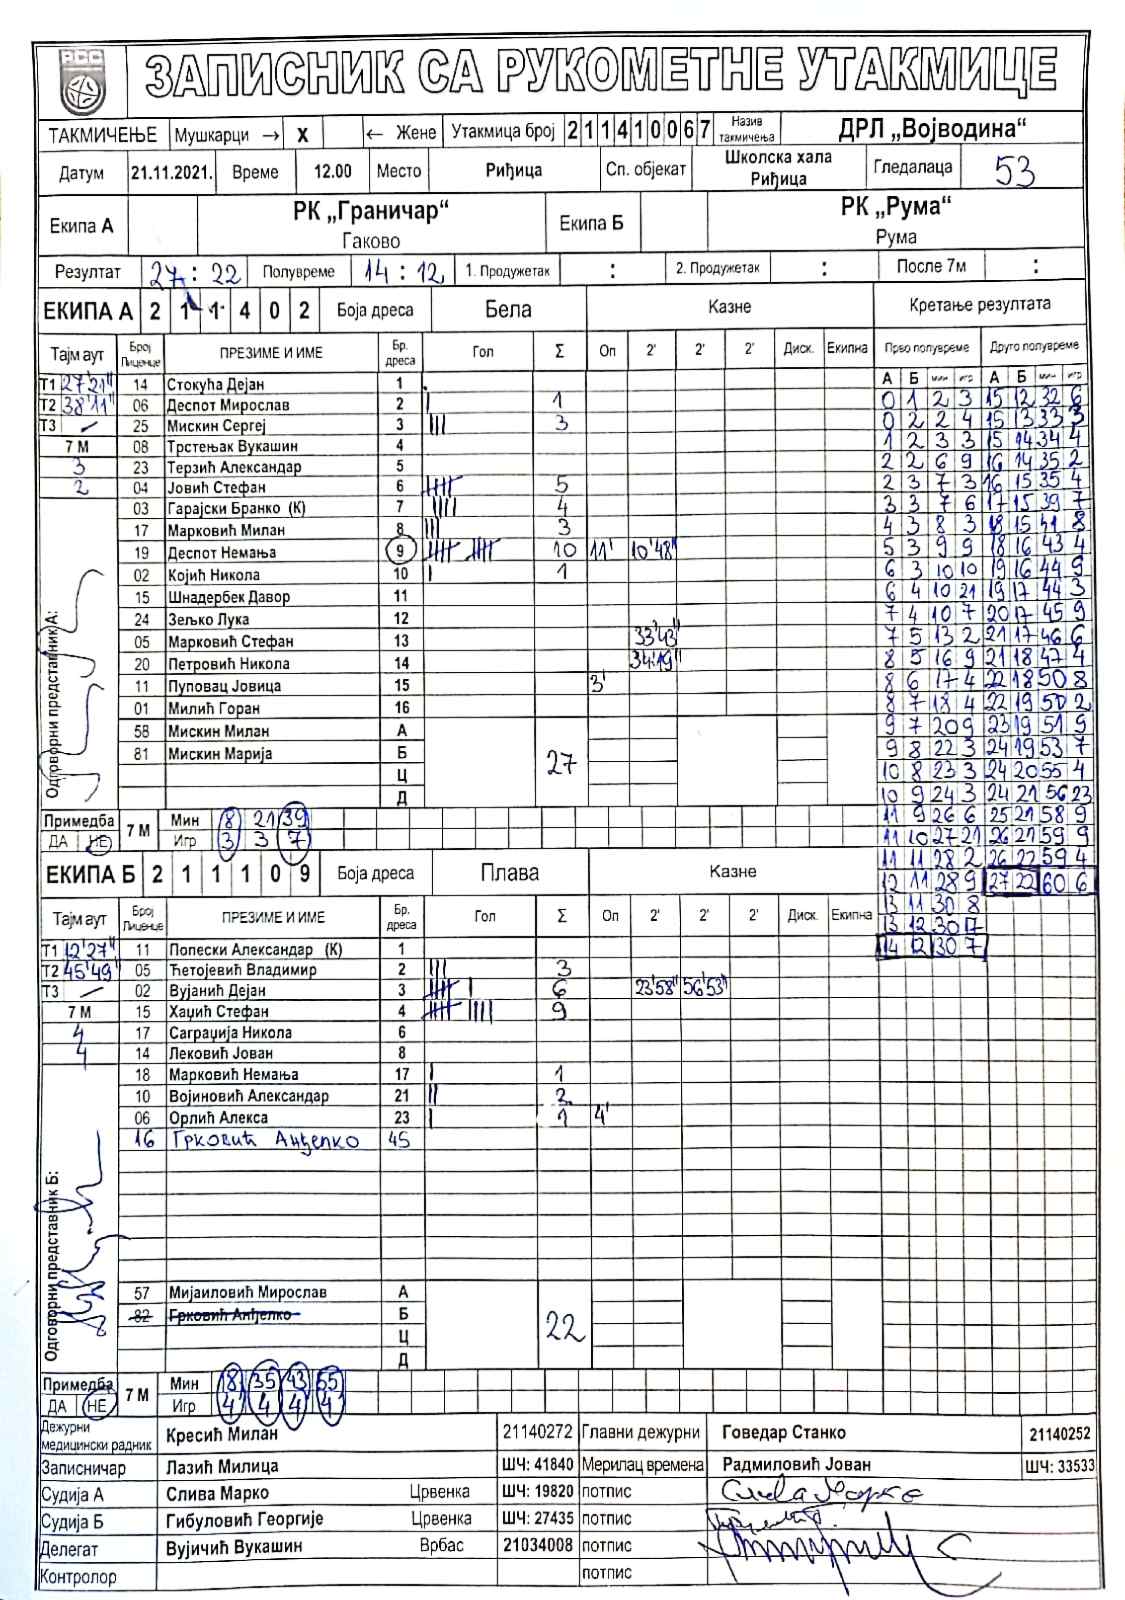 РСС
ЗАПИСНИК СА РУКОМЕТНЕ УТАКМИЦЕ
ТАКМИЧЕЊЕ Мушкарци → X ← Жене Утакмица број 211410067 Назив такмичења ДРЛ „Војводина“
Датум 21.11.2021. Време 12.00 Место Риђица Сп. објекат Школска хала Риђица Гледалаца 53
Екипа А РК „Граничар“ Гаково Екипа Б РК „Рума“ Рума
Резултат 27 : 22 Полувреме 14 : 12 1. Продужетак : 2. Продужетак : После 7м :
ЕКИПА А 2 1 1 4 0 2 Боја дреса Бела Казне Кретање резултата
Тајм аут Број Лиценце ПРЕЗИМЕ И ИМЕ Бр. дреса Гол Σ Оп 2' 2' 2' Диск. Екипна Прво полувреме Друго полувреме
А Б мин игр А Б мин игр
Т1 27'21" 14 Стокућа Дејан 1 0 1 2 3 15 12 32 6
Т2 38'11" 06 Деспот Мирослав 2 | 1 0 2 2 4 15 13 33 3
Т3 – 25 Мискин Сергеј 3 ||| 3 1 2 3 3 15 14 34 4
7 М 08 Трстењак Вукашин 4 2 2 6 9 16 14 35 2
3 23 Терзић Александар 5 2 3 7 3 16 15 35 4
2 04 Јовић Стефан 6 5 3 3 7 6 17 15 39 7
03 Гарајски Бранко (К) 7 |||| 4 4 3 8 3 18 15 41 8
17 Марковић Милан 8 ||| 3 5 3 9 9 18 16 43 4
19 Деспот Немања 9 10 11' 10'48" 6 3 10 10 19 16 44 9
02 Којић Никола 10 | 1 6 4 10 21 19 17 44 3
15 Шнадербек Давор 11 7 4 10 7 20 17 45 9
24 Зељко Лука 12 7 5 13 2 21 17 46 6
05 Марковић Стефан 13 33'43" 8 5 16 9 21 18 47 4
20 Петровић Никола 14 34'19" 8 6 17 4 22 18 50 8
11 Пуповац Јовица 15 3' 8 7 18 4 22 19 50 2
01 Милић Горан 16 9 7 20 9 23 19 51 9
58 Мискин Милан А 9 8 22 3 24 19 53 7
81 Мискин Марија Б 27 10 8 23 3 24 20 55 4
Ц 10 9 24 3 24 21 56 23
Д 11 9 26 6 25 21 58 9
Одговорни представник А:
Примедба ДА НЕ 7 М Мин 8 21 39 11 10 27 21 26 21 59 9
Игр 3 3 7 11 11 28 2 26 22 59 4
ЕКИПА Б 2 1 1 1 0 9 Боја дреса Плава Казне 12 11 28 9 27 22 60 6
13 11 30 8
13 12 30 17
14 12 30 7
Тајм аут Број Лиценце ПРЕЗИМЕ И ИМЕ Бр. дреса Гол Σ Оп 2' 2' 2' Диск. Екипна
Т1 12'27" 11 Попески Александар (К) 1
Т2 45'49" 05 Ћетојевић Владимир 2 ||| 3
Т3 – 02 Вујанић Дејан 3 6 23'58" 56'53"
7 М 15 Хаџић Стефан 4 9
4 17 Саграџија Никола 6
4 14 Лековић Јован 8
18 Марковић Немања 17 | 1
10 Војиновић Александар 21 || 2
06 Орлић Алекса 23 | 1 4'
16 Грковић Анђелко 45
Одговорни представник Б:
57 Мијаиловић Мирослав А
82 Грковић Анђелко Б 22
Ц
Д
Примедба ДА НЕ 7 М Мин 18 35 43 55
Игр 4 4 4 4
Дежурни медицински радник Кресић Милан 21140272 Главни дежурни Говедар Станко 21140252
Записничар Лазић Милица ШЧ: 41840 Мерилац времена Радмиловић Јован ШЧ: 33533
Судија А Слива Марко Црвенка ШЧ: 19820 потпис Слива Марко
Судија Б Гибуловић Георгије Црвенка ШЧ: 27435 потпис
Делегат Вујичић Вукашин Врбас 21034008 потпис
Контролор потпис